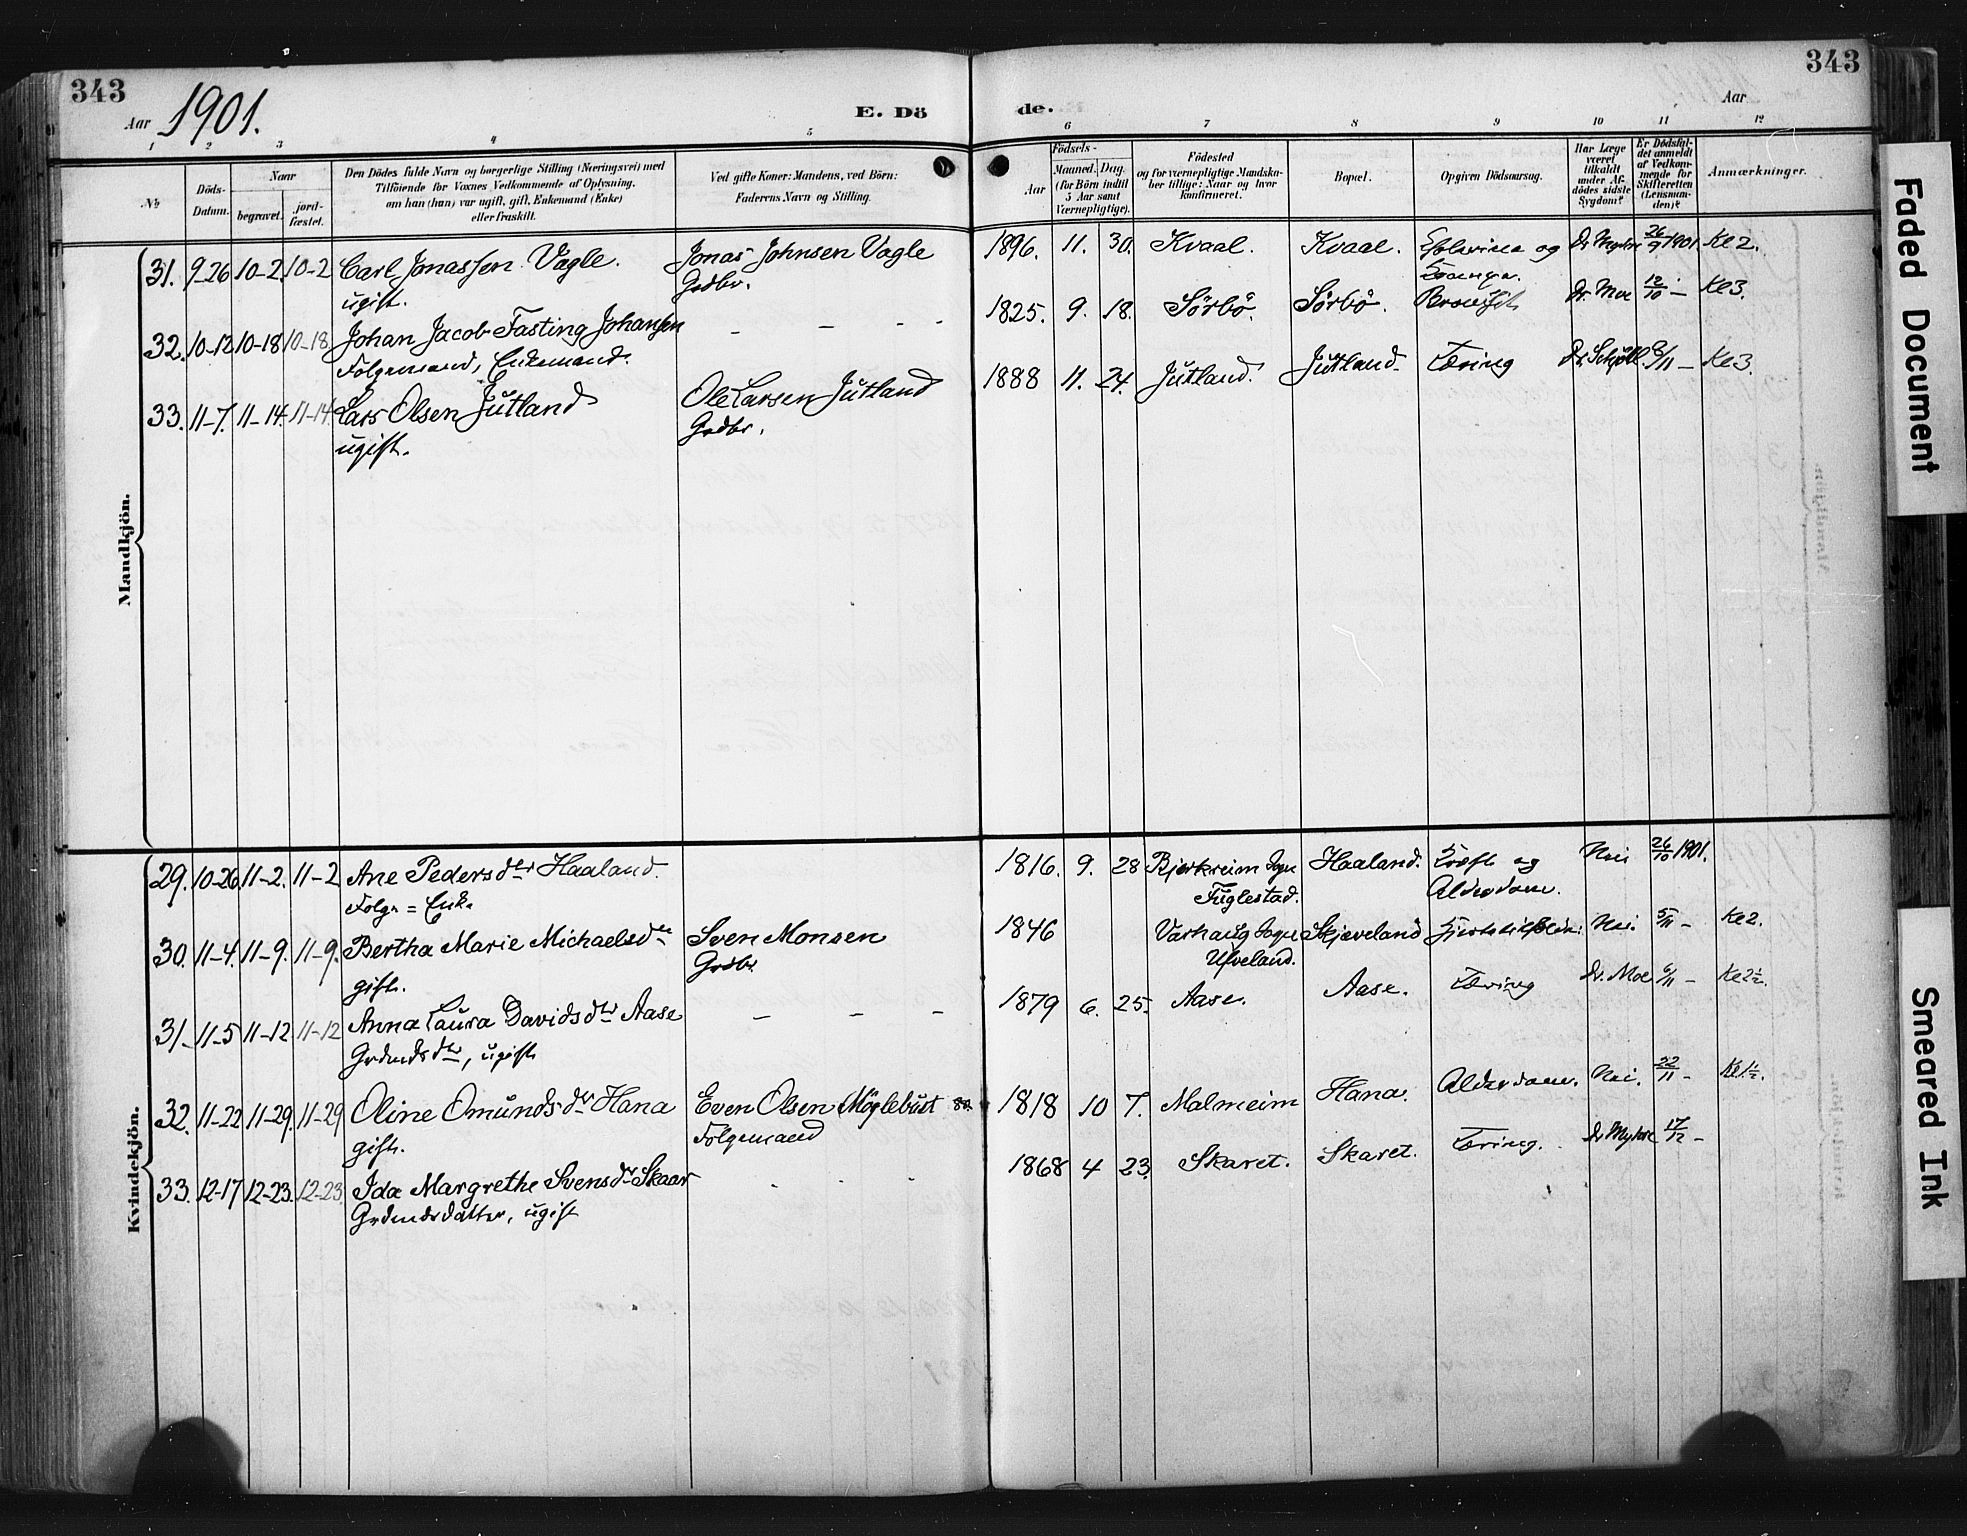 343
343
Aar 1901.
E. Dö
de.
Aar
1
2
3
4
5
6
7
8
9
10
11
12
No
Döds-
Datum.
Naar
begravet.
jord-
fæstet.
Den Dödes fulde Navn og borgerlige Stilling (Næringsvei) med
Tilföiende for Voxnes Vedkommende af Oplysning,
om han (hun) var ugift, gift, Enkemand (Enke)
eller fraskilt.
Ved gifte Koner: Mandens, ved Börn:
Faderens Navn og Stilling.
Födsels-
Aar
Maaned.
Dag.
(for Börn indtil
5 Aar samt
Værnepligtige).
Födested
og for værnepligtige Mandska-
ber tillige: Naar og hvor
konfirmeret.
Bopæl.
Opgiven Dödsaarsag.
Har Læge
været
tilkaldt
under Af-
dödes sidste
Sygdom?
Er Dödsfal-
det anmeldt
af Vedkom-
mende for
Skifteretten
(Lensman-
den)?
Anmærkninger.
Mandkjön.
31. 9-26 10-2. 10-2 Carl Jonassen Vagle. Jonas Johnsen Vagle 1896. 11. 30. Kvaal. Kvaal. og 26/9 1901. Kl 2.
ugift. Grdbr.
32. 10-12 10-18 10-18 Johan Jacob Fasting Johansen - - - - 1825. 9. 18. Sörbö. Sörbö. Dr. Moe 12/10 - Kl 3.
Folgemand, Enkemand.
33. 11-7. 11-14. 11-14. Lars Olsen Jütland Ole Larsen Jütland 1888 11. 24. Jütland. Jütland. Tæring /11 - Kl 3.
ugift. Grdbr.
Kvindekjön.
29. 10-26. 11-2. 11-2 Ane Pedersdtr Haaland. 1816. 9. 28 Bjerkreim Sogn Haaland. Kræft og Nei 26/10 1901.
Folgr = Enke Fuglestad. Alderdom.
30. 11-4. 11-9. 11-9. Bertha Marie Michaelsdtr Sven Monsen 1846 Varhaug Sogn Skjæveland Nei. 5/11 - Kl 2.
gift. Grdbr.
31. 11-5 11-12 11-12 Anna Laura Davidsdtr Aase - - - 1879 6. 25. Aase. Aase. Tæring Dr. Moe 6/11 - Kl 2½.
Grdmdsdtr, ugift
32. 11-22 11-29. 11-29 Oline Omundsdtr Hana Even Olsen Möglebüst 1818 10 7. Malmeim Hana. Alderdom. Nei. 22/11 - Kl 1½.
gift. Folgemand
33. 12-17 12-23. 12-23. Ida Margrethe Svensdtr Skaar - - - 1868 4 23. Skaret. Skaret. Tæring. 17/12 -
Grdmdsdatter, ugift
Faded Document
Smeared Ink